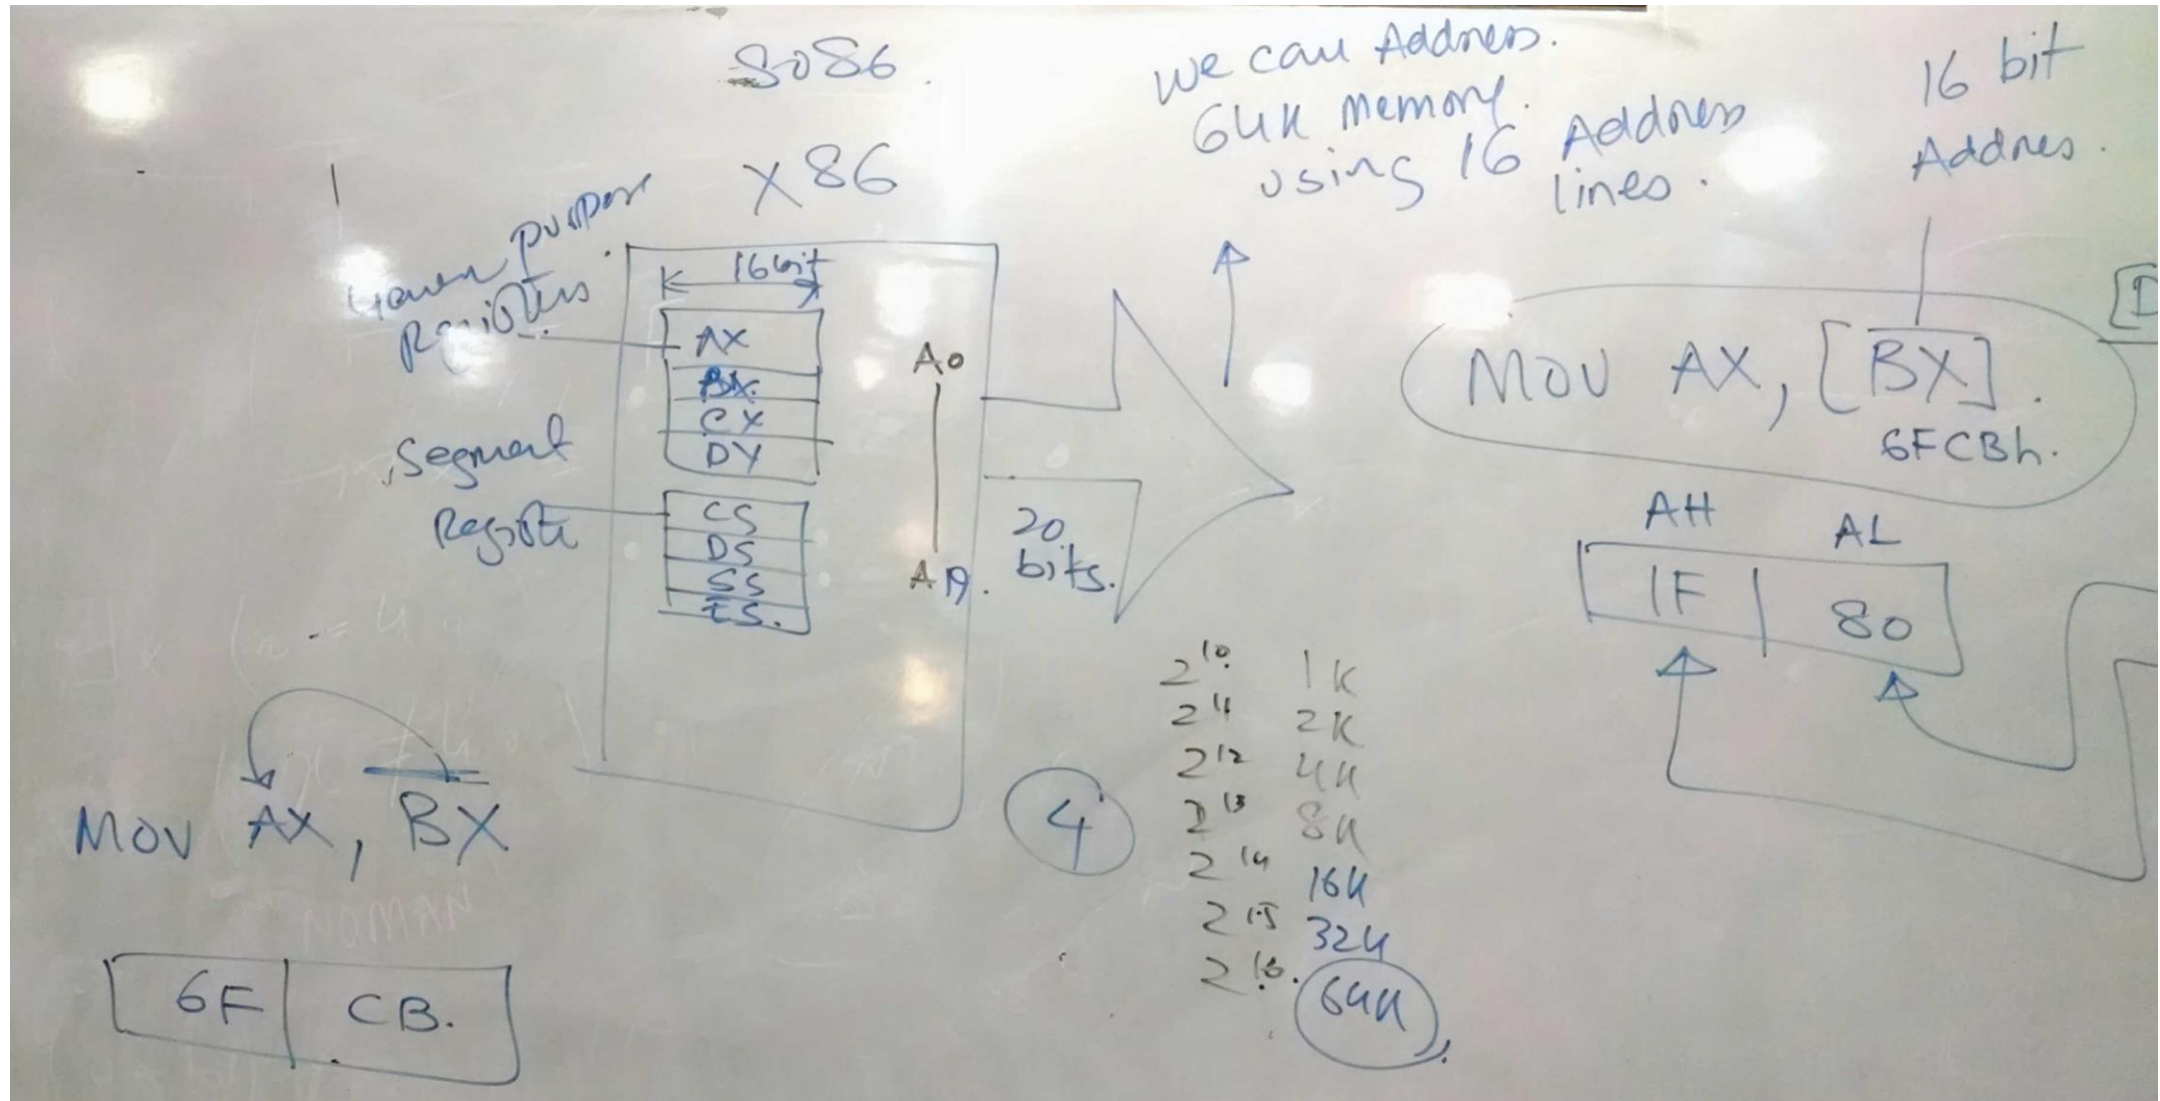 8086.
X86
General purpose
Registers
16bit
AX
BX.
CX
DX
Segment
Register
CS
DS
SS
ES.
A0
A19.
20
bits.
we can Address.
64K memory.
using 16 Address
lines.
16 bit
Addres.
MOV AX, [BX].
6FCBh.
AH AL
1F 80
MOV AX, BX
6F CB.
4
2^10 1K
2^11 2K
2^12 4K
2^13 8K
2^14 16K
2^15 32K
2^16. 64K
NOMAN